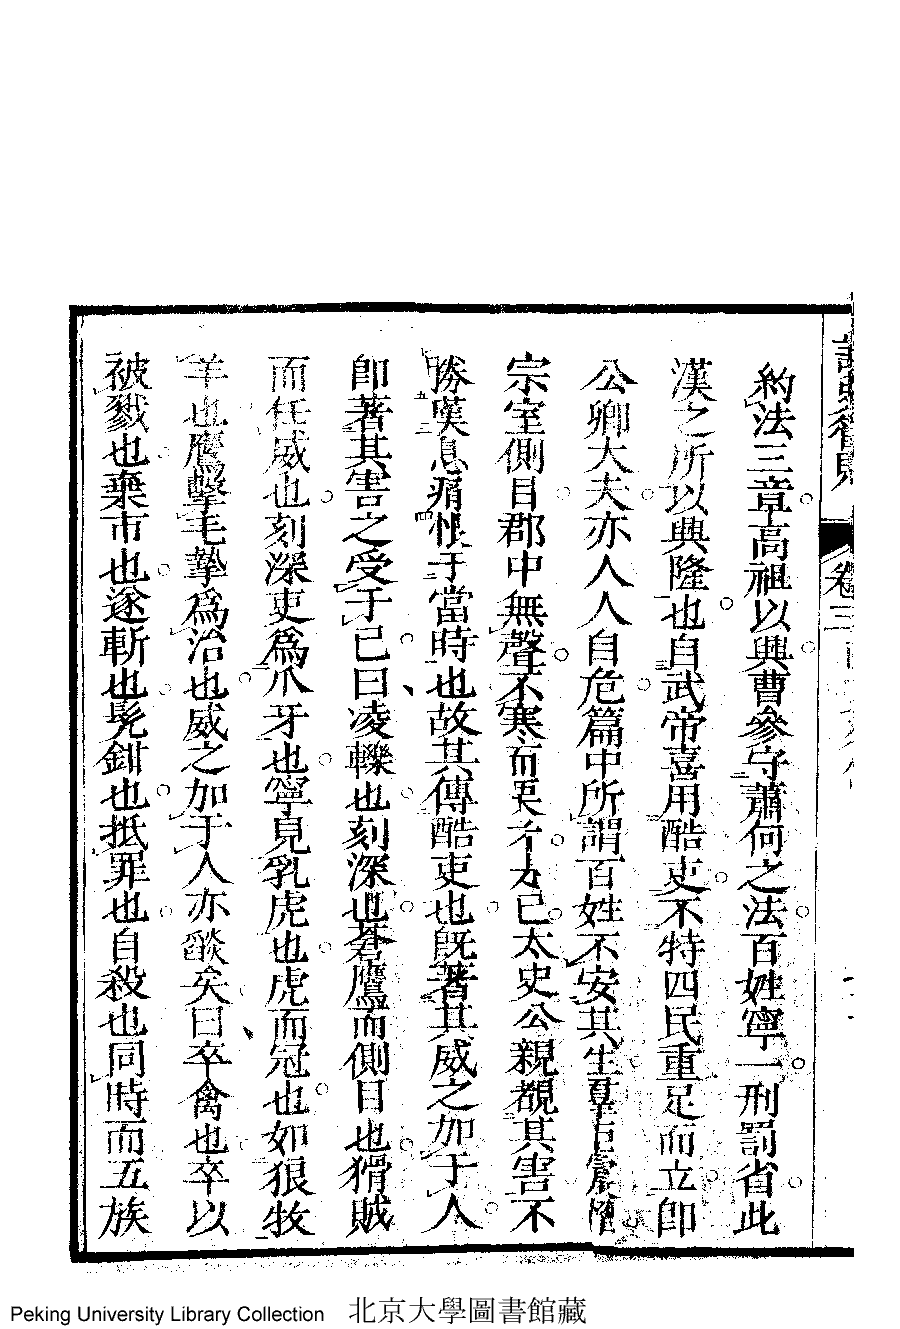 約法三章高祖以興曹參守蕭何之法百姓寧一刑罰省此
漢之所以興隆也自武帝喜用酷吏不特四民重足而立即
公卿大夫亦人人自危篇中所謂百姓不安其生羣臣震慴
宗室側目郡中無聲不寒而栗者九已太史公親覩其害不
勝嘆息痛恨于當時也故其傳酷吏也既著其威之加于人
即著其害之受于已曰凌轢也刻深也蒼鷹而側目也猾賊
而任威也刻深吏爲爪牙也寧見乳虎也虎而冠也如狼牧
羊也鷹擊毛摯爲治也威之加于人亦燄矣曰卒禽也卒以
被戮也棄市也遂斬也髡鉗也抵罪也自殺也同時而五族
卷三
Peking University Library Collection 北京大學圖書館藏